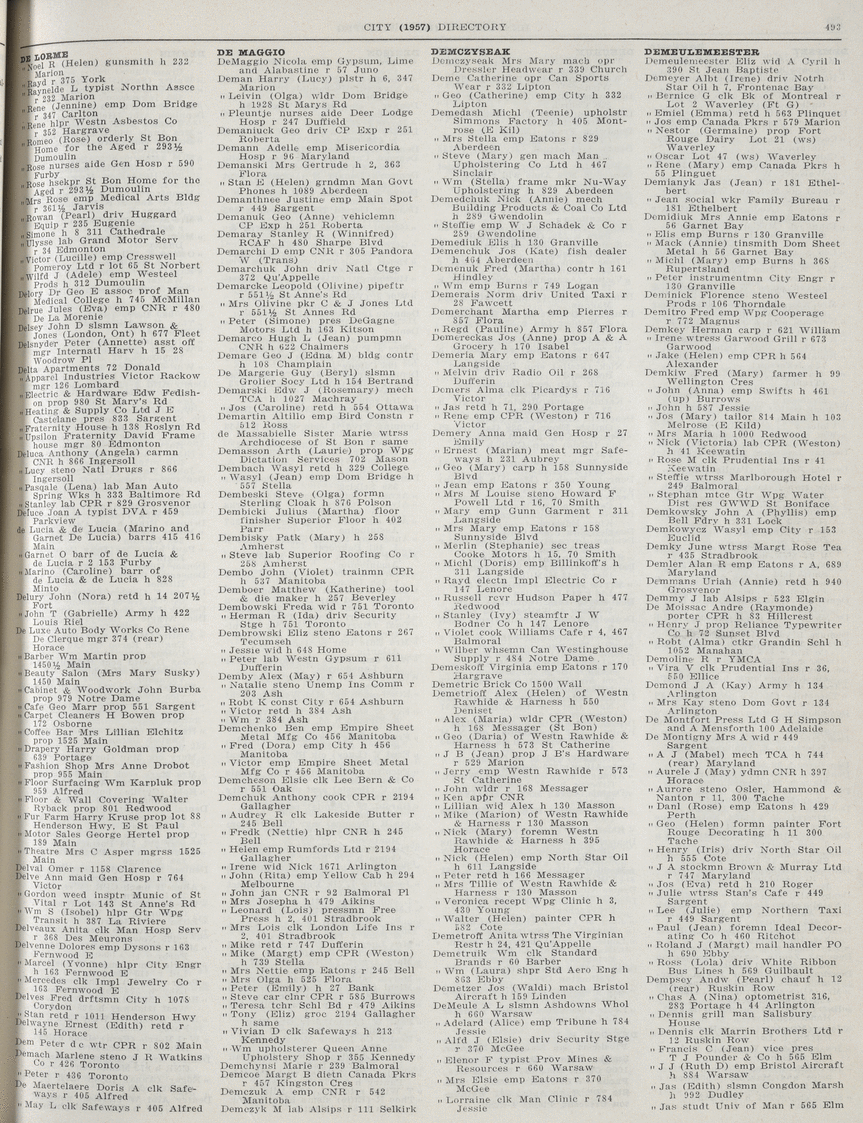 CITY (1957) DIRECTORY 493
DE LORME
„ Noel R (Helen) gunsmith h 232
Marion
„ Rayd r 375 York
„ Raynelde L typist Northn Assce
r 232 Marion
„ Rene (Jennine) emp Dom Bridge
r 347 Carlton
„ Rene hlpr Westn Asbestos Co
r 352 Hargrave
„ Romeo (Rose) orderly St Bon
Home for the Aged r 293½
Dumoulin
„ Rose nurses aide Gen Hosp r 590
Furby
„ Rose hsekpr St Bon Home for the
Aged r 293½ Dumoulin
„ Mrs Rose emp Medical Arts Bldg
r 361½ Jarvis
„ Rowan (Pearl) driv Huggard
Equip r 235 Eugenie
„ Simone h 8 311 Cathedrale
„ Ulysse lab Grand Motor Serv
r 34 Edmonton
„ Victor (Lucille) emp Cresswell
Pomeroy Ltd r lot 65 St Norbert
„ Wilfd J (Adele) emp Westeel
Prods h 312 Dumoulin
Delory Dr Geo E assoc prof Man
Medical College h 745 McMillan
Delrue Jules (Eva) emp CNR r 480
De La Morenie
Delsey John D slsmn Lawson &
Jones (London, Ont) h 677 Fleet
Delsnyder Peter (Annette) asst off
mgr Internatl Harv h 15 28
Woodrow Pl
Delta Apartments 72 Donald
„ Apparel Industries Victor Rackow
mgr 126 Lombard
„ Electric & Hardware Edw Fedish-
on prop 980 St Mary's Rd
„ Heating & Supply Co Ltd J E
Castelane pres 833 Sargent
„ Fraternity House h 138 Roslyn Rd
„ Upsilon Fraternity David Frame
house mgr 80 Edmonton
Deluca Anthony (Angela) carmn
CNR h 866 Ingersoll
„ Lucy steno Natl Drugs r 866
Ingersoll
„ Pasqale (Lena) lab Man Auto
Spring Wks h 333 Baltimore Rd
„ Stanley lab CPR r 829 Grosvenor
Deluce Joan A typist DVA r 459
Parkview
de Lucia & de Lucia (Marino and
Garnet De Lucia) barrs 415 416
Main
„ Garnet O barr of de Lucia &
de Lucia r 2 153 Furby
„ Marino (Caroline) barr of
de Lucia & de Lucia h 828
Minto
Delury John (Nora) retd h 14 207½
Fort
„ John T (Gabrielle) Army h 422
Louis Riel
De Luxe Auto Body Works Co Rene
De Clerque mgr 374 (rear)
Horace
„ Barber Wm Martin prop
1450½ Main
„ Beauty Salon (Mrs Mary Susky)
1450 Main
„ Cabinet & Woodwork John Burba
prop 979 Notre Dame
„ Cafe Geo Marr prop 551 Sargent
„ Carpet Cleaners H Bowen prop
172 Osborne
„ Coffee Bar Mrs Lillian Elchitz
prop 1525 Main
„ Drapery Harry Goldman prop
639 Portage
„ Fashion Shop Mrs Anne Drobot
prop 955 Main
„ Floor Surfacing Wm Karpluk prop
959 Alfred
„ Floor & Wall Covering Walter
Ryback prop 801 Redwood
„ Fur Farm Harry Kruse prop lot 88
Henderson Hwy, E St Paul
„ Motor Sales George Hertel prop
189 Main
„ Theatre Mrs C Asper mgrss 1525
Main
Delval Omer r 1158 Clarence
Delve Ann maid Gen Hosp r 764
Victor
„ Gordon weed insptr Munic of St
Vital r Lot 143 St Anne's Rd
„ Wm S (Isobel) hlpr Gtr Wpg
Transit h 387 La Riviere
Delveaux Anita clk Man Hosp Serv
r 368 Des Meurons
Delvenne Dolores emp Dysons r 163
Fernwood E
„ Marcel (Yvonne) hlpr City Engr
h 163 Fernwood E
„ Mercedes clk Impl Jewelry Co r
163 Fernwood E
Delves Fred drftsmn City h 1078
Corydon
„ Stan retd r 1011 Henderson Hwy
Delwayne Ernest (Edith) retd r
145 Horace
Dem Peter d c wtr CPR r 802 Main
Demach Marlene steno J R Watkins
Co r 426 Toronto
„ Peter r 436 Toronto
De Maertelaere Doris A clk Safe-
ways r 405 Alfred
„ May L clk Safeways r 405 Alfred
DE MAGGIO
DeMaggio Nicola emp Gypsum, Lime
and Alabastine r 57 Juno
Deman Harry (Lucy) plstr h 6, 347
Marion
„ Leivin (Olga) wldr Dom Bridge
h 1928 St Marys Rd
„ Pleuntje nurses aide Deer Lodge
Hosp r 247 Duffield
Demaniuck Geo driv CP Exp r 251
Roberta
Demann Adelle emp Misericordia
Hosp r 96 Maryland
Demanski Mrs Gertrude h 2, 363
Flora
„ Stan E (Helen) grndmn Man Govt
Phones h 1089 Aberdeen
Demanthnee Justine emp Main Spot
r 449 Sargent
Demanuk Geo (Anne) vehiclemn
CP Exp h 251 Roberta
Demaray Stanley R (Winnifred)
RCAF h 480 Sharpe Blvd
Demarchi D emp CNR r 305 Pandora
W (Trans)
Demarchuk John driv Natl Ctge r
372 Qu'Appelle
Demarcke Leopold (Olivine) pipeftr
r 551½ St Anne's Rd
„ Mrs Olivine pkr C & J Jones Ltd
r 551½ St Annes Rd
„ Peter (Simone) pres DeGagne
Motors Ltd h 163 Kitson
Demarco Hugh L (Jean) pumpmn
CNR h 622 Chalmers
Demare Geo J (Edna M) bldg contr
h 108 Champlain
De Margerie Guy (Beryl) slsmn
Grolier Socy Ltd h 154 Bertrand
Demarski Edw J (Rosemary) mech
TCA h 1027 Machray
„ Jos (Caroline) retd h 554 Ottawa
Demartin Altillo emp Bird Constn r
512 Ross
de Massabielle Sister Marie wtrss
Archdiocese of St Bon r same
Demasson Arth (Laurie) prop Wpg
Dictation Services 702 Mason
Dembach Wasyl retd h 329 College
„ Wasyl (Jean) emp Dom Bridge h
557 Stella
Dembeski Steve (Olga) formn
Sterling Cloak h 876 Polson
Dembicki Julius (Martha) floor
finisher Superior Floor h 402
Parr
Dembisky Patk (Mary) h 258
Amherst
„ Steve lab Superior Roofing Co r
258 Amherst
Dembo John (Violet) trainmn CPR
h 537 Manitoba
Demboer Matthew (Katherine) tool
& die maker h 257 Beverley
Dembowski Freda wid r 751 Toronto
„ Herman R (Ida) driv Security
Stge h 751 Toronto
Dembrowski Eliz steno Eatons r 267
Tecumseh
„ Jessie wid h 648 Home
„ Peter lab Westn Gypsum r 611
Dufferin
Demby Alex (May) r 654 Ashburn
„ Natalie steno Unemp Ins Comm r
203 Ash
„ Robt K const City r 654 Ashburn
„ Victor retd h 384 Ash
„ Wm r 384 Ash
Demchenko Ben emp Empire Sheet
Metal Mfg Co 456 Manitoba
„ Fred (Dora) emp City h 456
Manitoba
„ Victor emp Empire Sheet Metal
Mfg Co r 456 Manitoba
Demcheson Elsie clk Lee Bern & Co
r 551 Oak
Demchuk Anthony cook CPR r 2194
Gallagher
„ Audrey R clk Lakeside Butter r
245 Bell
„ Fredk (Nettie) hlpr CNR h 245
Bell
„ Helen emp Rumfords Ltd r 2194
Gallagher
„ Irene wid Nick 1671 Arlington
„ John (Rita) emp Yellow Cab h 294
Melbourne
„ John jan CNR r 92 Balmoral Pl
„ Mrs Josepha h 479 Aikins
„ Leonard (Lois) pressmn Free
Press h 2, 401 Stradbrook
„ Mrs Lois clk London Life Ins r
2, 401 Stradbrook
„ Mike retd r 747 Dufferin
„ Mike (Margt) emp CPR (Weston)
h 739 Stella
„ Mrs Nettie emp Eatons r 245 Bell
„ Mrs Olga h 525 Flora
„ Peter (Emily) h 27 Bank
„ Steve car clnr CPR r 585 Burrows
„ Teresa tchr Schl Bd r 479 Aikins
„ Tony (Eliz) groc 2194 Gallagher
h same
„ Vivian D clk Safeways h 213
Kennedy
„ Wm upholsterer Queen Anne
Upholstery Shop r 355 Kennedy
Demchynsi Marie r 239 Balmoral
Demcoe Margt B dietn Canada Pkrs
r 457 Kingston Cres
Demczuk A emp CNR r 542
Manitoba
Demczyk M lab Alsips r 111 Selkirk
DEMCZYSEAK
Demczyseak Mrs Mary mach opr
Dressler Headwear r 339 Church
Deme Catherine opr Can Sports
Wear r 332 Lipton
„ Geo (Catherine) emp City h 332
Lipton
Demedash Michl (Teenie) upholstr
Simmons Factory h 405 Mont-
rose (E Kil)
„ Mrs Stella emp Eatons r 829
Aberdeen
„ Steve (Mary) gen mach Man
Upholstering Co Ltd h 467
Sinclair
„ Wm (Stella) frame mkr Nu-Way
Upholstering h 829 Aberdeen
Demedchuk Nick (Annie) mech
Building Products & Coal Co Ltd
h 289 Gwendolin
„ Steffie emp W J Schadek & Co r
289 Gwendoline
Demediuk Elis h 130 Granville
Demenchuk Jos (Kate) fish dealer
h 464 Aberdeen
Demenuk Fred (Martha) contr h 161
Hindley
„ Wm emp Burns r 749 Logan
Demerais Norm driv United Taxi r
28 Fawcett
Demerchant Martha emp Pierres r
857 Flora
„ Regd (Pauline) Army h 857 Flora
Demereckas Jos (Anne) prop A & A
Grocery h 170 Isabel
Demeria Mary emp Eatons r 647
Langside
„ Melvin driv Radio Oil r 268
Dufferin
Demers Alma clk Picardys r 716
Victor
„ Jas retd h 71, 290 Portage
„ Rene emp CPR (Weston) r 716
Victor
Demery Anna maid Gen Hosp r 27
Emily
„ Ernest (Marian) meat mgr Safe-
ways h 231 Aubrey
„ Geo (Mary) carp h 158 Sunnyside
Blvd
„ Jean emp Eatons r 350 Young
„ Mrs M Louise steno Howard F
Powell Ltd r 16, 70 Smith
„ Mary emp Gunn Garment r 311
Langside
„ Mrs Mary emp Eatons r 158
Sunnyside Blvd
„ Merlin (Stephanie) sec treas
Cooke Motors h 15, 70 Smith
„ Michl (Doris) emp Billinkoff's h
311 Langside
„ Rayd electn Impl Electric Co r
147 Lenore
„ Russell rcvr Hudson Paper h 477
Redwood
„ Stanley (Ivy) steamftr J W
Bodner Co h 147 Lenore
„ Violet cook Williams Cafe r 4, 467
Balmoral
„ Wilber whsemn Can Westinghouse
Supply r 484 Notre Dame
Demeskoff Virginia emp Eatons r 170
Hargrave
Demetric Brick Co 1500 Wall
Demetrioff Alex (Helen) of Westn
Rawhide & Harness h 550
Deniset
„ Alex (Maria) wldr CPR (Weston)
h 168 Messager (St Bon)
„ Geo (Daria) of Westn Rawhide &
Harness h 573 St Catherine
„ J B (Jean) prop J B's Hardware
r 529 Marion
„ Jerry emp Westn Rawhide r 573
St Catherine
„ John wldr r 168 Messager
„ Ken appr CNR
„ Lillian wid Alex h 130 Masson
„ Mike (Marion) of Westn Rawhide
& Harness r 130 Masson
„ Nick (Mary) foremn Westn
Rawhide & Harness h 395
Horace
„ Nick (Helen) emp North Star Oil
h 611 Langside
„ Peter retd h 166 Messager
„ Mrs Tillie of Westn Rawhide &
Harness r 130 Masson
„ Veronica recept Wpg Clinic h 3,
430 Young
„ Walter (Helen) painter CPR h
582 Cote
Demetroff Anita wtrss The Virginian
Restr h 24, 421 Qu'Appelle
Demetruik Wm clk Standard
Brands r 60 Barber
„ Wm (Laura) shpr Std Aero Eng h
863 Ebby
Demetzer Jos (Waldi) mach Bristol
Aircraft h 159 Linden
DeMeule A L slsmn Ashdowns Whol
h 660 Warsaw
„ Adelard (Alice) emp Tribune h 784
Jessie
„ Alfd J (Elsie) driv Security Stge
r 370 McGee
„ Elenor F typist Prov Mines &
Resources r 660 Warsaw
„ Mrs Elsie emp Eatons r 370
McGee
„ Lorraine clk Man Clinic r 784
Jessie
DEMEULEMEESTER
Demeulemeester Eliz wid A Cyril h
390 St Jean Baptiste
Demeyer Albt (Irene) driv Notrh
Star Oil h 7, Frontenac Bay
„ Bernice G clk Bk of Montreal r
Lot 2 Waverley (Ft G)
„ Emiel (Emma) retd h 563 Plinquet
„ Jos emp Canada Pkrs r 579 Marion
„ Nestor (Germaine) prop Fort
Rouge Dairy Lot 21 (ws)
Waverley
„ Oscar Lot 47 (ws) Waverley
„ Rene (Mary) emp Canada Pkrs h
55 Plinguet
Demianyk Jas (Jean) r 181 Ethel-
bert
„ Jean social wkr Family Bureau r
181 Ethelbert
Demidiuk Mrs Annie emp Eatons r
56 Garnet Bay
„ Elis emp Burns r 130 Granville
„ Mack (Annie) tinsmith Dom Sheet
Metal h 56 Garnet Bay
„ Michl (Mary) emp Burns h 368
Rupertsland
„ Peter instrumentmn City Engr r
130 Granville
Deminick Florence steno Westeel
Prods r 106 Thorndale
Demitro Fred emp Wpg Cooperage
r 772 Magnus
Demkey Herman carp r 621 William
„ Irene wtress Garwood Grill r 673
Garwood
„ Jake (Helen) emp CPR h 564
Alexander
Demkiw Fred (Mary) farmer h 99
Wellington Cres
„ John (Anna) emp Swifts h 461
(up) Burrows
„ John h 587 Jessie
„ Jos (Mary) tailor 814 Main h 103
Melrose (E Kild)
„ Mrs Maria h 1000 Redwood
„ Nick (Victoria) lab CPR (Weston)
h 41 Keewatin
„ Rose M clk Prudential Ins r 41
Keewatin
„ Steffie wtrss Marlborough Hotel r
249 Balmoral
„ Stephan mtce Gtr Wpg Water
Dist res GWWD St Boniface
Demkowsky John A (Phyllis) emp
Bell Fdry h 331 Lock
Demkowycz Wasyl emp City r 153
Euclid
Demky June wtrss Margt Rose Tea
r 435 Stradbrook
Demler Alan R emp Eatons r A, 689
Maryland
Demmans Uriah (Annie) retd h 940
Grosvenor
Demmy J lab Alsips r 523 Elgin
De Moissac Andre (Raymonde)
porter CPR h 83 Hillcrest
„ Henry J prop Reliance Typewriter
Co h 72 Sunset Blvd
„ Robt (Alma) ctkr Grandin Schl h
1052 Manahan
Demoline R r YMCA
„ Vira V clk Prudential Ins r 36,
550 Ellice
Demond J A (Kay) Army h 134
Arlington
„ Mrs Kay steno Dom Govt r 134
Arlington
De Montfort Press Ltd G H Simpson
and A Mensforth 100 Adelaide
De Montigny Mrs A wid r 449
Sargent
„ A J (Mabel) mech TCA h 744
(rear) Maryland
„ Aurele J (May) ydmn CNR h 397
Horace
„ Aurore steno Osler, Hammond &
Nanton r 11, 300 Tache
„ Danl (Rose) emp Eatons h 429
Perth
„ Geo (Helen) formn painter Fort
Rouge Decorating h 11 300
Tache
„ Henry (Iris) driv North Star Oil
h 555 Cote
„ J A stockmn Brown & Murray Ltd
r 747 Maryland
„ Jos (Eva) retd h 210 Roger
„ Julie wtrss Stan's Cafe r 449
Sargent
„ Lee (Julie) emp Northern Taxi
r 449 Sargent
„ Paul (Jean) foremn Ideal Decor-
ating Co h 460 Ritchot
„ Roland J (Margt) mail handler PO
h 690 Ebby
„ Ross (Lola) driv White Ribbon
Bus Lines h 569 Guilbault
Dempsey Andw (Pearl) chauf h 12
(rear) Ruskin Row
„ Chas A (Nina) optometrist 316,
283 Portage h 44 Arlington
„ Dennis grill man Salisbury
House
„ Dennis clk Marrin Brothers Ltd r
12 Ruskin Row
„ Francis C (Jean) vice pres
T J Pounder & Co h 565 Elm
„ J J (Ruth D) emp Bristol Aircraft
h 884 Warsaw
„ Jas (Edith) slsmn Congdon Marsh
h 992 Dudley
„ Jas studt Univ of Man r 565 Elm